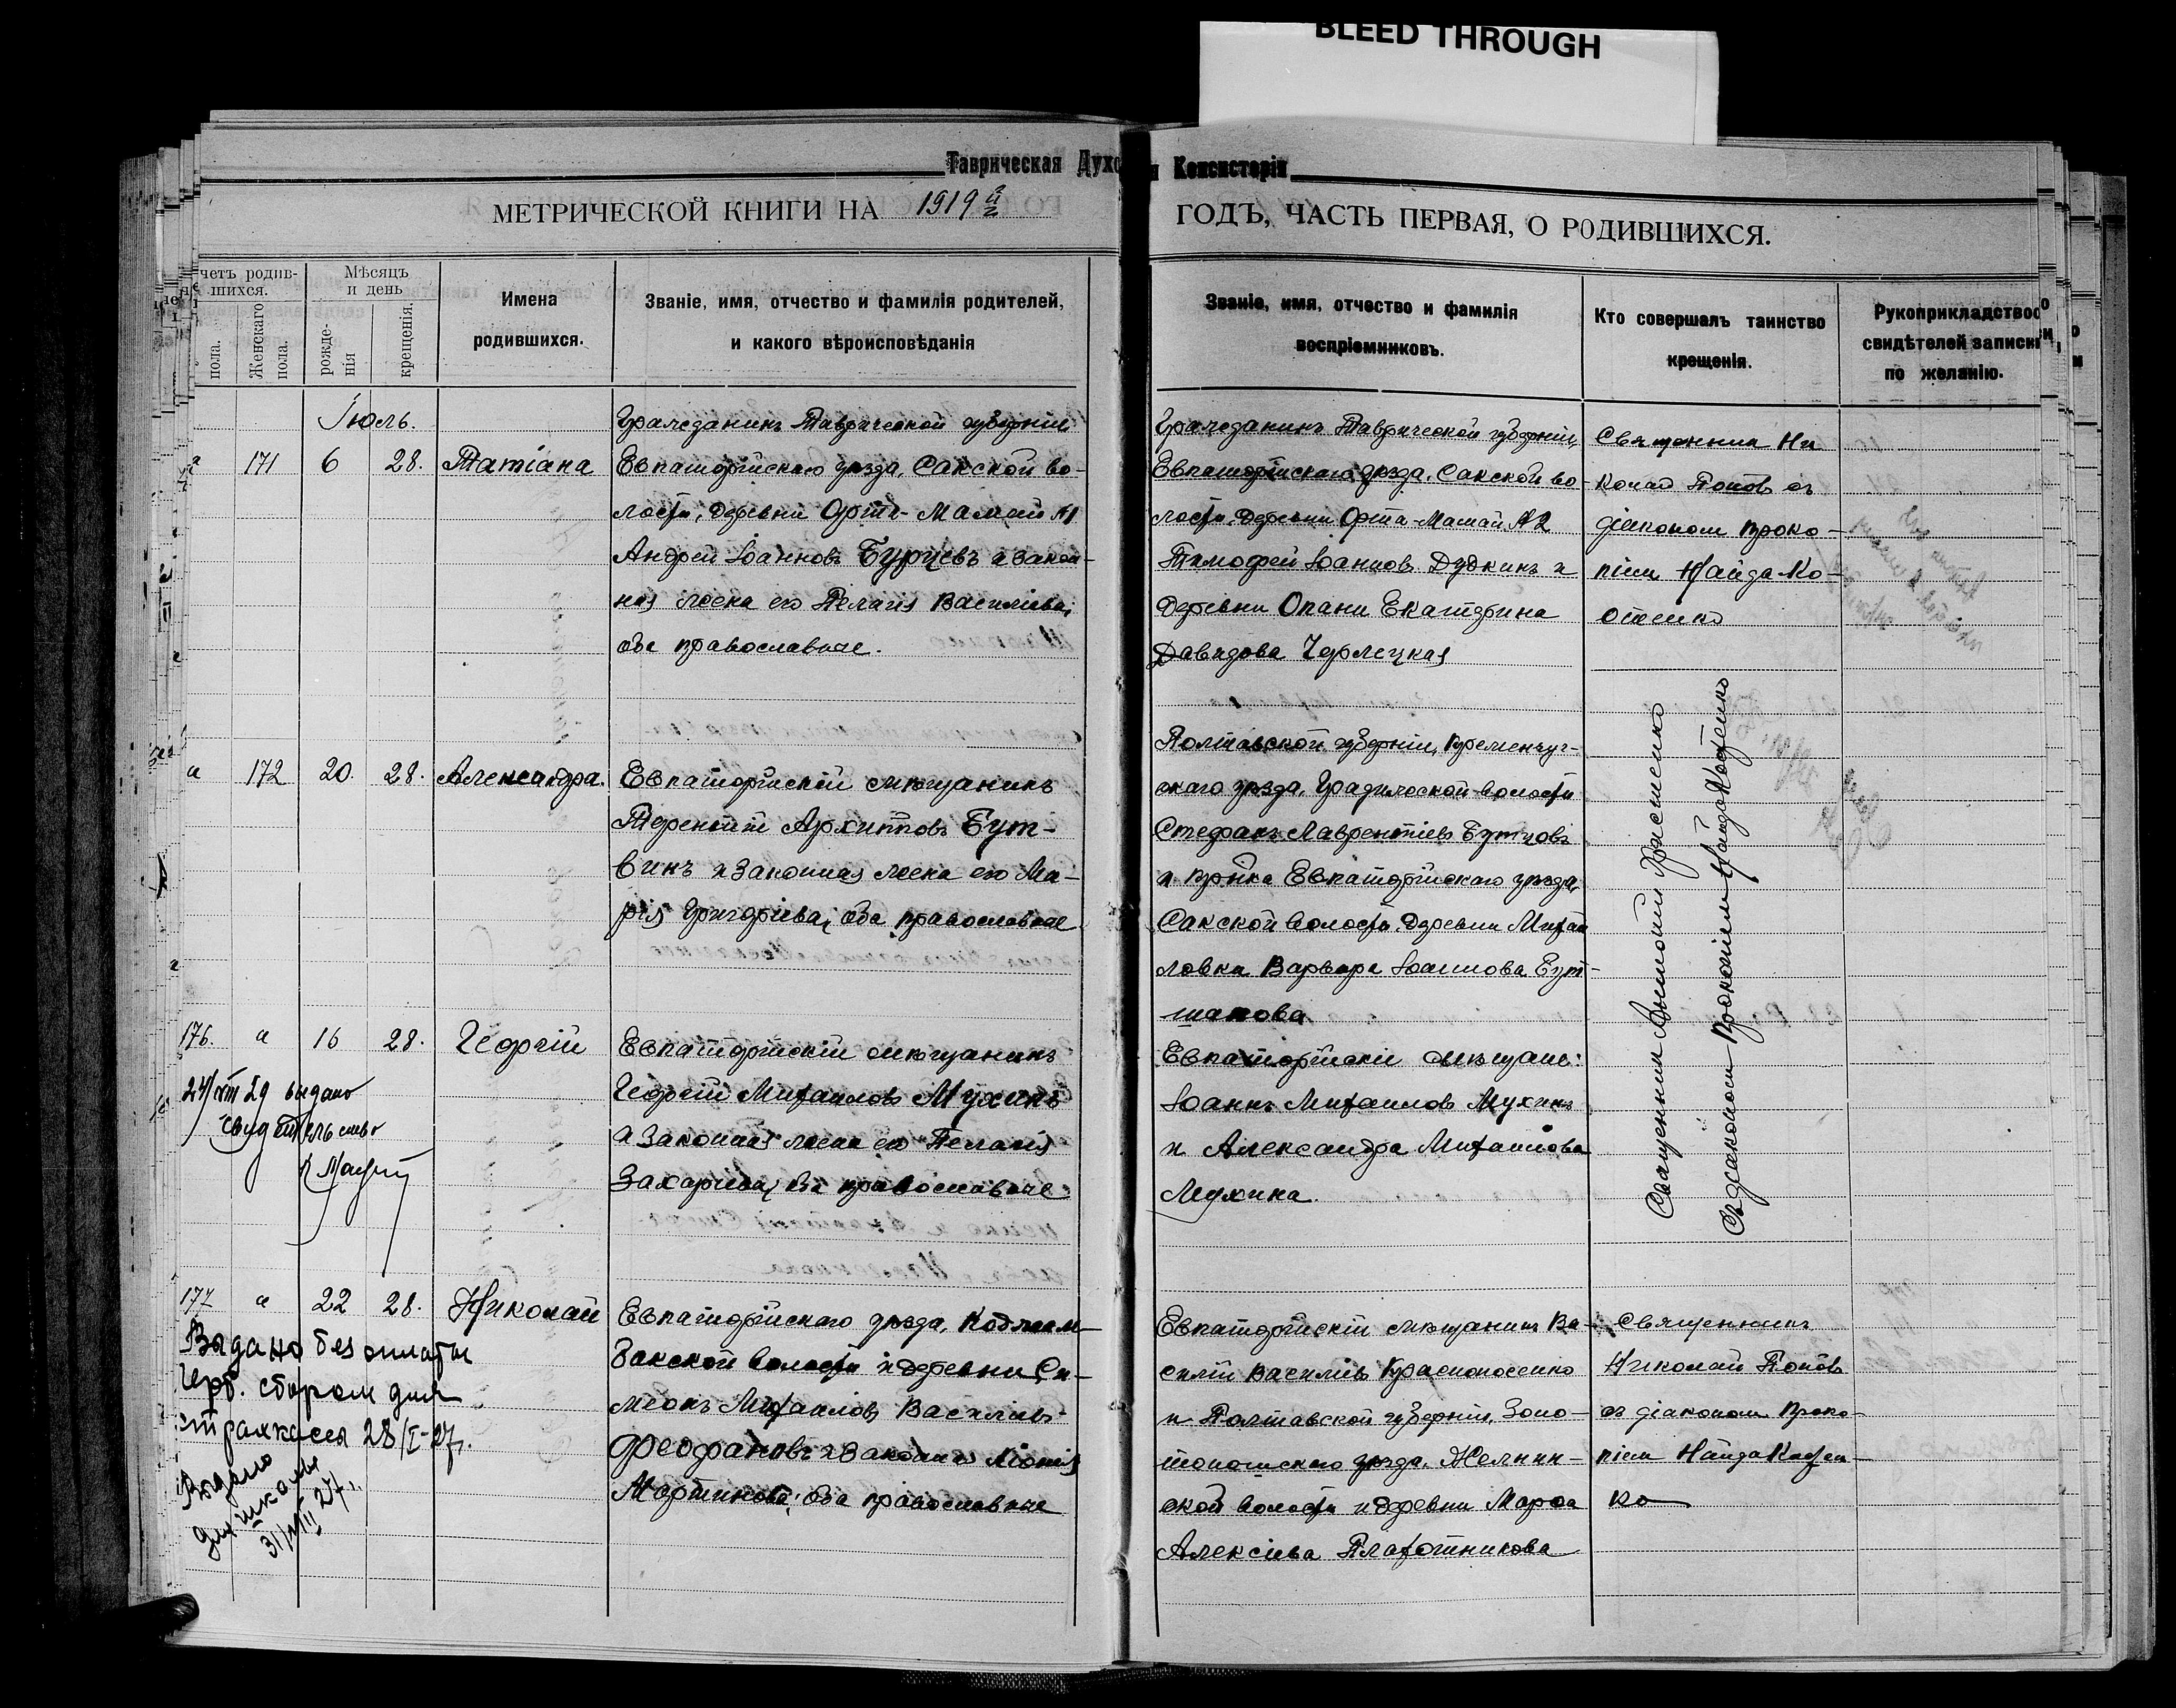 BLEED THROUGH
Таврическая Духо
я Консисторія
МЕТРИЧЕСКОЙ КНИГИ НА 1919 й г
ГОДЪ, ЧАСТЬ ПЕРВАЯ, О РОДИВШИХСЯ.
четъ родив-
шихся.
пола.
Женскаго
пола.
Мѣсяцъ
и день
рожде-
нія
крещенія.
Имена
родившихся.
Званіе, имя, отчество и фамилія родителей,
и какого вѣроисповѣданія
Званіе, имя, отчество и фамилія
воспріемниковъ.
Кто совершалъ таинство
крещенія.
Рукоприкладство
свидѣтелей записи
по желанію.
Іюль.
171 6 28. Татіана
Гражданинъ Таврической губерніи
Евпаторійскаго уѣзда, Сакской во-
лости, деревни Орта-Мамай №1
Андрей Іоанновъ Бурцевъ и закон-
ная жена его Пелагія Василіева,
оба православные.
Гражданинъ Таврической губерніи,
Евпаторійскаго уѣзда, Сакской во-
лости, деревни Орта-Мамай №2
Тимофей Іоанновъ Дудкинъ и
деревни Опани Екатерина
Давидова Черлецкая
Священник Ни
колай Попов съ
діаконом Проко-
піем Найда-Ко-
стенко
а 172 20. 28. Александра.
Евпаторійскій мѣщанинъ
Терентій Архипповъ Бут-
винъ и законная жена его Ма-
рія Григоріева, оба православные
Полтавской губерніи, Кременчуг-
скаго уѣзда, Градижской волости
Стефанъ Лаврентіевъ
и Евпаторійскаго уѣзда,
Сакской волости, деревни Михай
ловка Варвара Іоаннова
Священник
съ діаконом Прокопіем Найда Костенко
176. а 16 28. Георгій
выдано
свидетельство
Евпаторійскій мѣщанинъ
Георгій Михаиловъ Мухинъ
и законная жена его Пелагія
Захаріева, оба православные
Евпаторійскіе мѣщане:
Іоаннъ Михаиловъ Мухинъ
и Александра Михаилова
Мухина.
177 а 22 28. Николай
Выдано без оплаты
герб. сбором для
страхкассы 28/I-27г.
Выдано
для школы
31/VIII 27г.
Евпаторійскаго уѣзда,
волости и деревни Си-
меонъ Михаиловъ Василіев-
Феофановъ и законная
Мартинова, оба православные
Евпаторійскій мѣщанинъ Ва-
силій Василіевъ Красноносенко
и Полтавской губерніи, Золо-
тоношскаго уѣзда,
ской волости и деревни Марѳа
Алексіева Плахотникова
Священникъ
Николай Поповъ
съ діаконом Проко-
піем Найда Костен-
ко